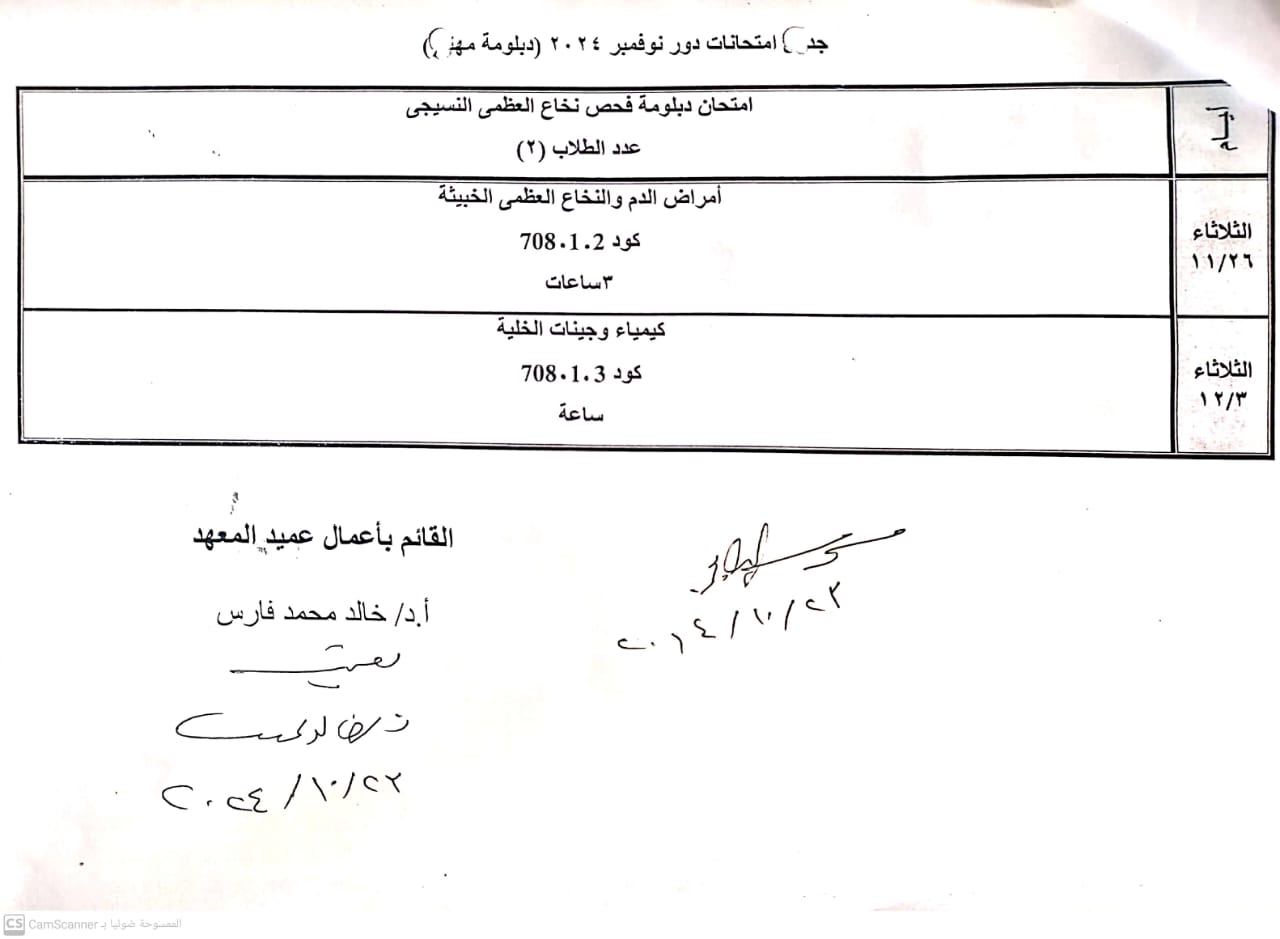 امتحانات دور نوفمبر ٢٠٢٤ (دبلومة
أيام
امتحان دبلومة فحص نخاع العظمى النسيجى
عدد الطلاب (٢)
الثلاثاء
١١/٢٦
أمراض الدم والنخاع العظمى الخبيثة
كود 708.1.2
٣ساعات
الثلاثاء
١٢/٣
كيمياء وجينات الخلية
كود 708.1.3
ساعة
القائم بأعمال عميد المعهد
أ.د/ خالد محمد فارس
٢٠٢٤/١٠/٢٢
CS CamScanner الممسوحة ضوئيا بـ